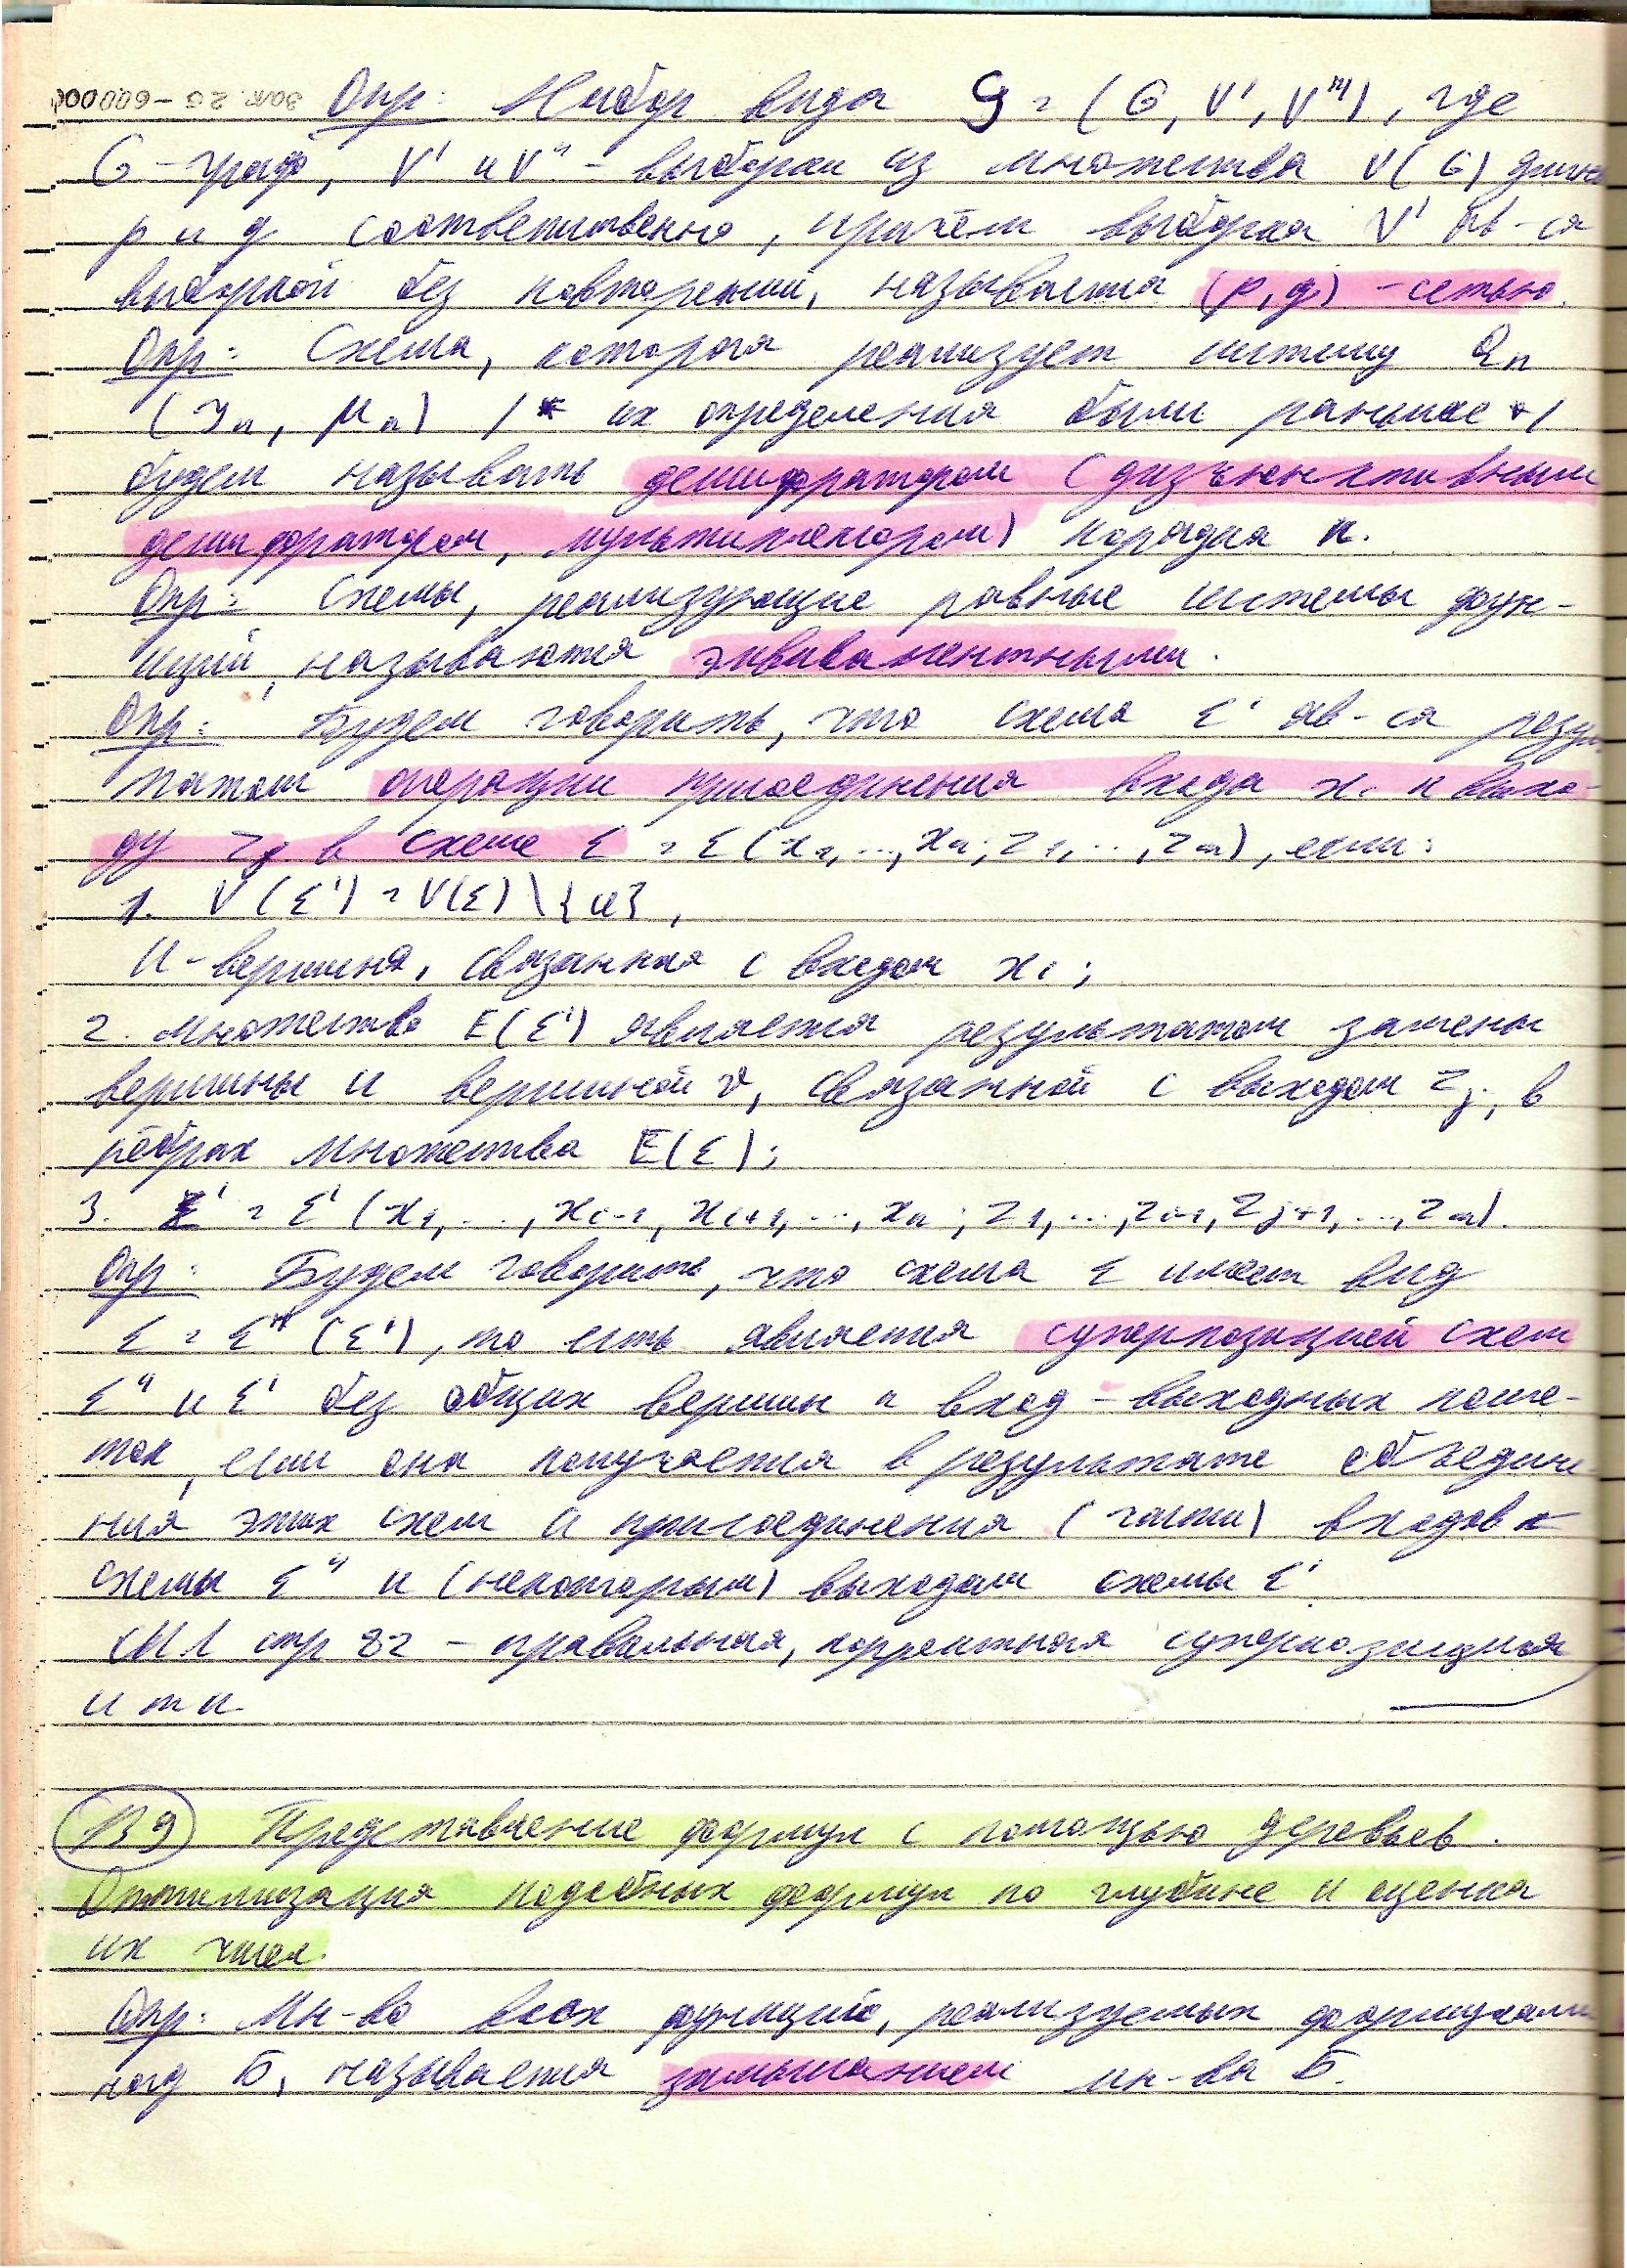 Зак. 25 - 600000
Опр: Набор вида G = (G, V', V''), где
G - граф, V' и V'' - выборки из множества V(G) длины
p и q соответственно, причём выборка V' яв-ся
выборкой без повторений, называется (p,q) - сетью.
Опр: Схема, которая реализует систему Qn
(Jn, μn) /* их определения были раньше */
будем называть дешифратором (дизъюнктивным
дешифратором, мультиплексором) порядка n.
Опр: Схемы, реализующие равные системы функ-
ций, называются эквивалентными.
Опр: Будем говорить, что схема Σ' яв-ся резуль
татом операции присоединения входа xi к выхо-
ду zj в схеме Σ = Σ(x1,...,xn; z1,...,zm), если:
1. V(Σ') = V(Σ)\{u},
u - вершина, связанная с входом xi;
2. Множество E(Σ') является результатом замены
вершины u вершиной v, связанной с выходом zj, в
рёбрах множества E(Σ);
3. Σ' = Σ'(x1,...,xi-1, xi+1,...,xn; z1,...,zj-1, zj+1,...,zm).
Опр: Будем говорить, что схема Σ имеет вид
Σ = Σ''(Σ'), то есть является суперпозицией схем
Σ'' и Σ' без общих вершин и вход-выходных поме-
ток, если она получается в результате объедине
ния этих схем и присоединения (части) входов
схемы Σ'' к (некоторым) выходам схемы Σ'
стр 82 - правильная, корректная суперпозиция
и т п.
В9 Представление формул с помощью деревьев.
Оптимизация подобных формул по глубине и оценка
их числа.
Опр: Мн-во всех функций, реализуемых формулами
над Б, называется замыканием мн-ва Б.